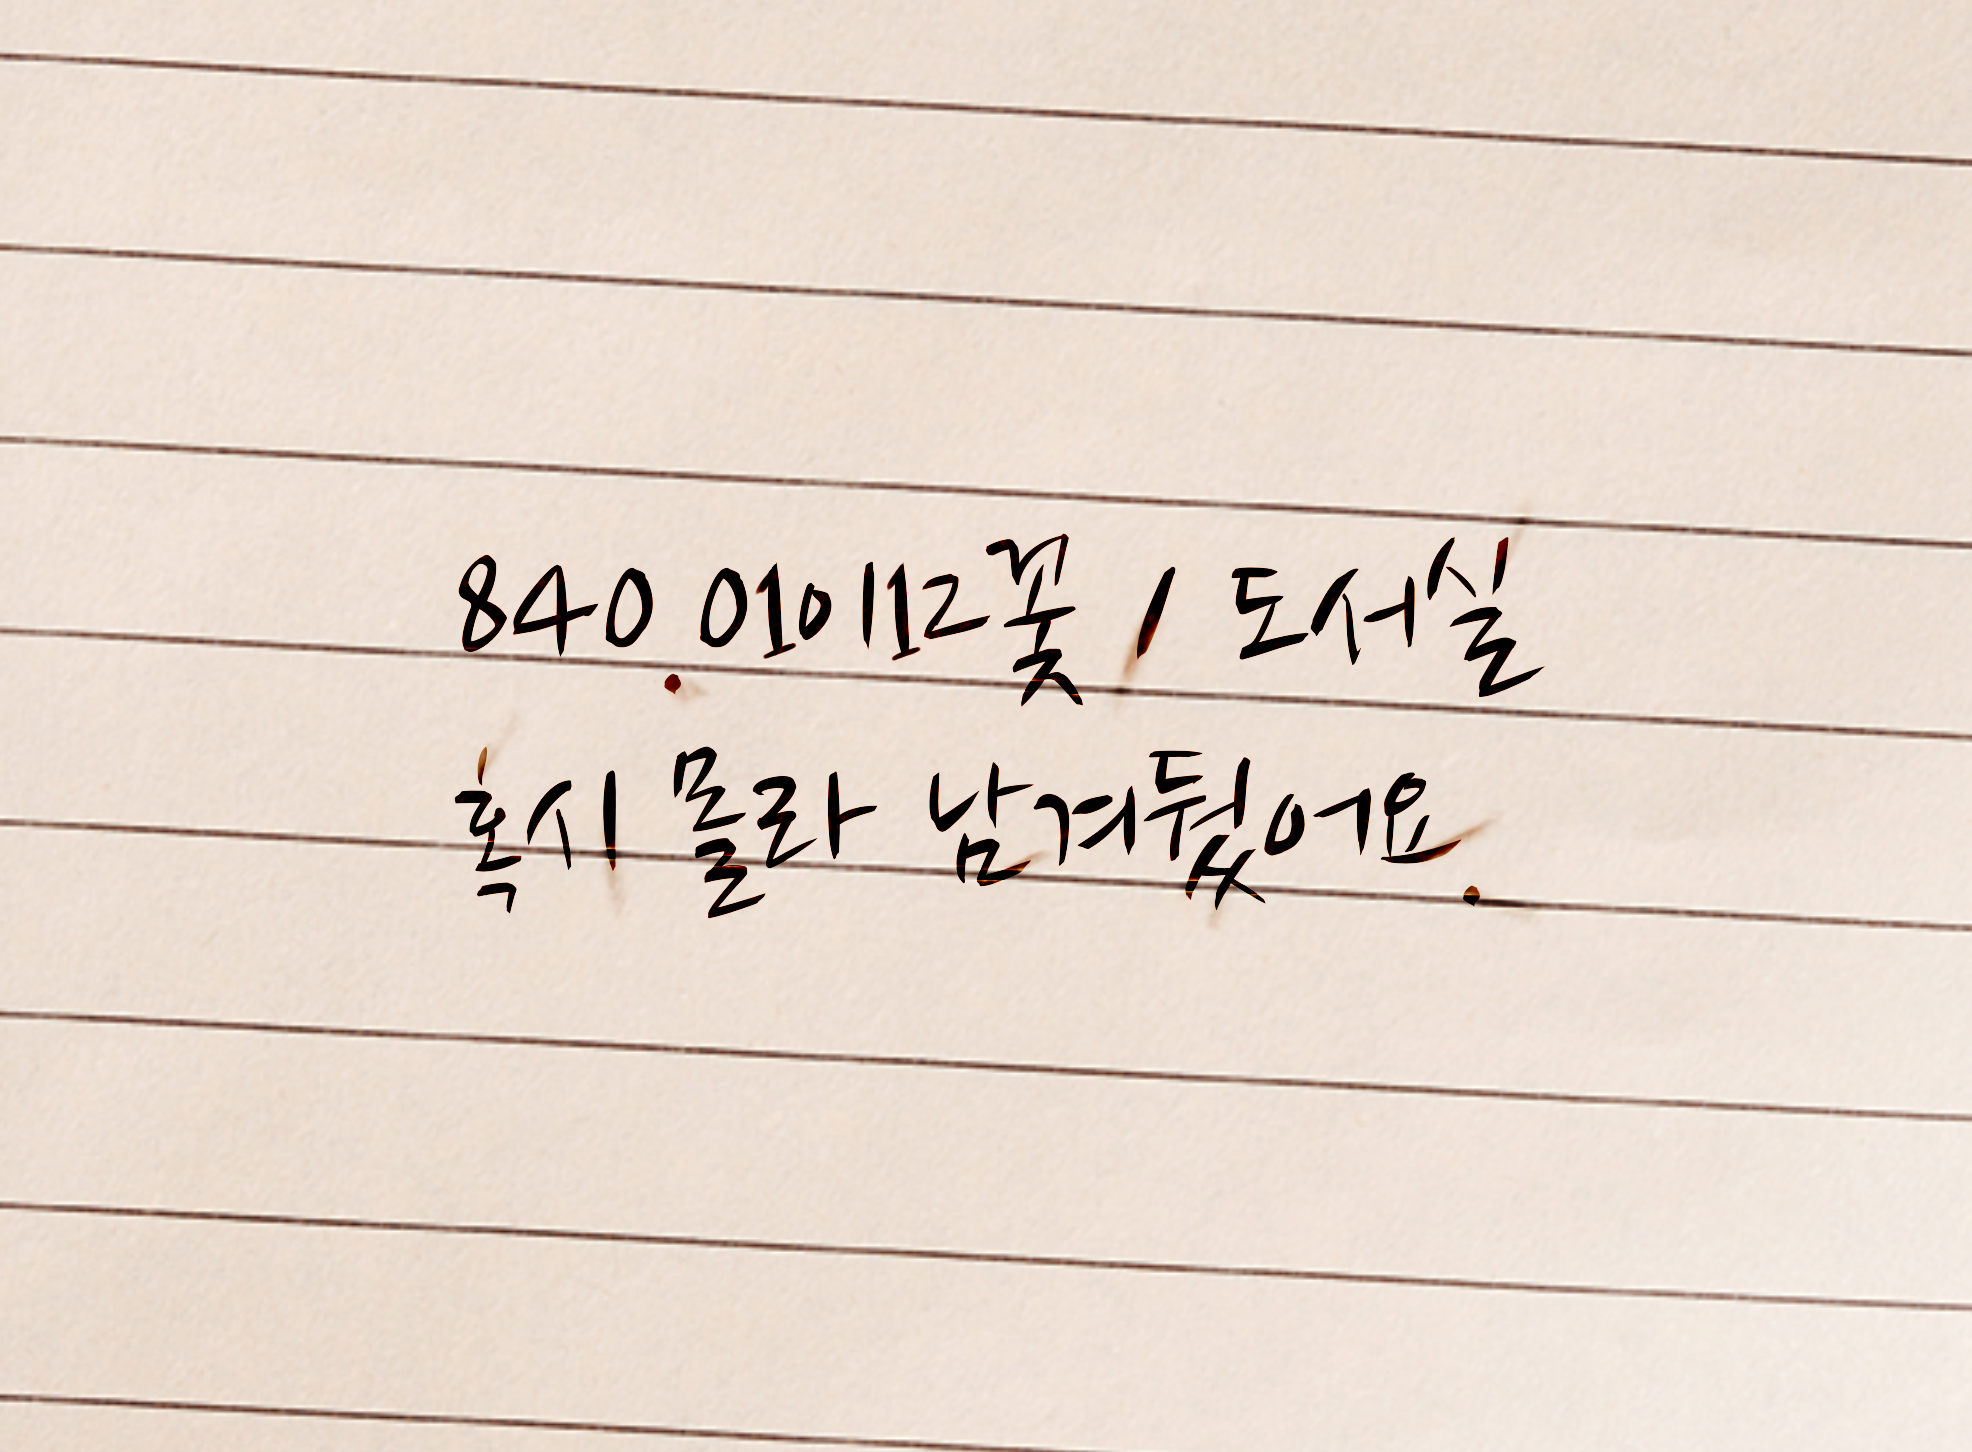 840.01이12꽃 / 도서실
혹시 몰라 남겨뒀어요.